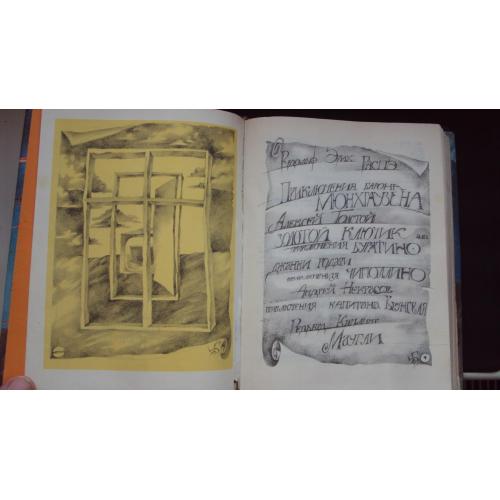 Рудольф Эрих
Распэ
Приключения барона
Мюнхгаузена
Алексей Толстой
Золотой ключик
или
приключения Буратино
Джанни Родари
приключения Чиполлино
Андрей Некрасов
приключения капитана Врунгеля
Редьярд Киплинг
Маугли